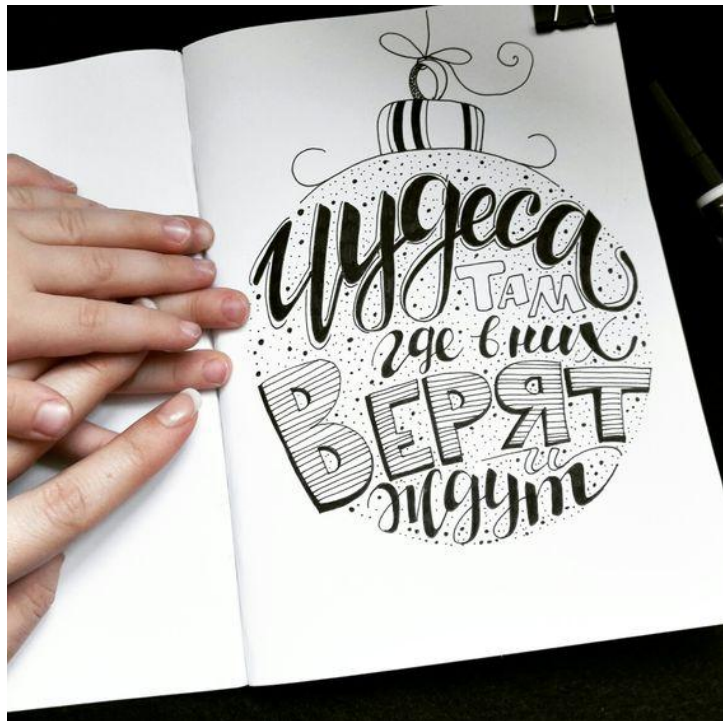 Чудеса
там
где в них
Верят
и
ждут